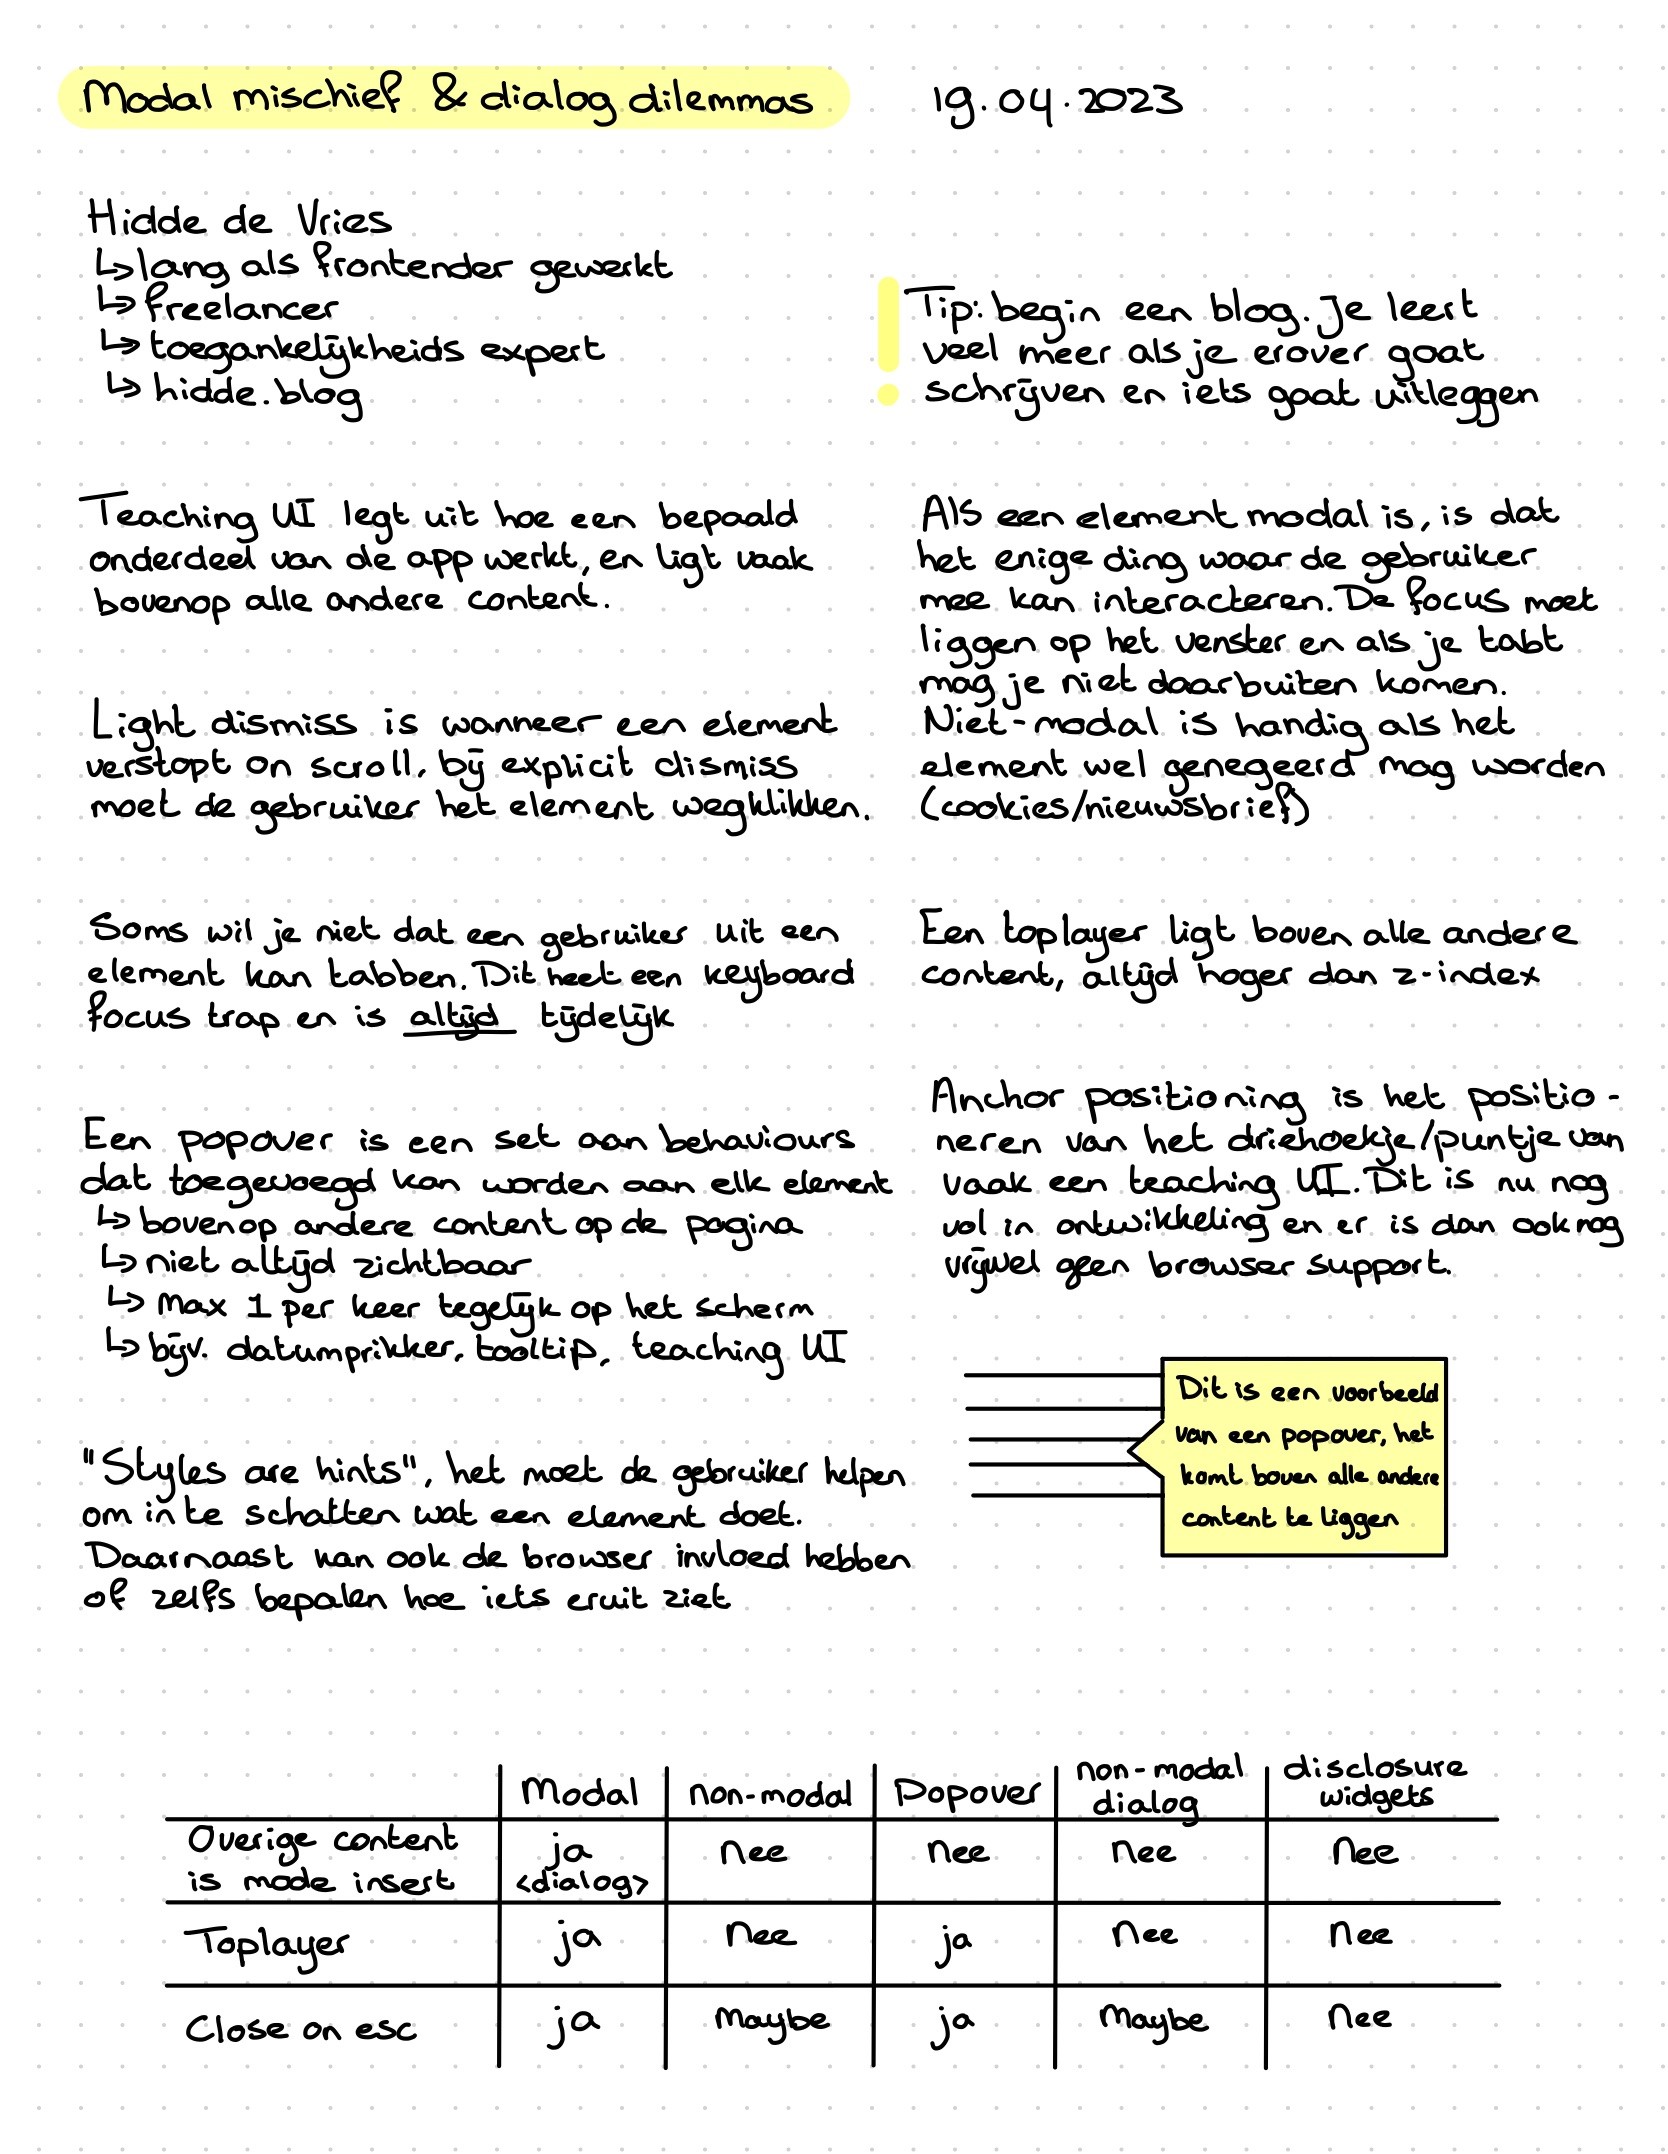 Modal mischief & dialog dilemmas
19.04.2023
Hidde de Vries
↳ lang als frontender gewerkt
↳ freelancer
↳ toegankelijkheids expert
↳ hidde.blog
Tip: begin een blog. Je leert
veel meer als je erover gaat
schrijven en iets gaat uitleggen
Teaching UI legt uit hoe een bepaald
onderdeel van de app werkt, en ligt vaak
bovenop alle andere content.
Light dismiss is wanneer een element
verstopt on scroll, bij explicit dismiss
moet de gebruiker het element wegklikken.
Soms wil je niet dat een gebruiker uit een
element kan tabben. Dit heet een keyboard
focus trap en is altijd tijdelijk
Een popover is een set aan behaviours
dat toegevoegd kan worden aan elk element
↳ bovenop andere content op de pagina
↳ niet altijd zichtbaar
↳ max 1 per keer tegelijk op het scherm
↳ bijv. datumprikker, tooltip, teaching UI
"Styles are hints", het moet de gebruiker helpen
om in te schatten wat een element doet.
Daarnaast kan ook de browser invloed hebben
of zelfs bepalen hoe iets eruit ziet
Als een element modal is, is dat
het enige ding waar de gebruiker
mee kan interacteren. De focus moet
liggen op het venster en als je tabt
mag je niet daarbuiten komen.
Niet-modal is handig als het
element wel genegeerd mag worden
(cookies/nieuwsbrief)
Een toplayer ligt boven alle andere
content, altijd hoger dan z-index
Anchor positioning is het positio-
neren van het driehoekje/puntje van
vaak een teaching UI. Dit is nu nog
vol in ontwikkeling en er is dan ook nog
vrijwel geen browser support.
Dit is een voorbeeld
van een popover, het
komt boven alle andere
content te liggen
Modal non-modal Popover non-modal dialog disclosure widgets
Overige content is mode insert ja <dialog> nee nee nee nee
Toplayer ja nee ja nee nee
Close on esc ja maybe ja maybe nee